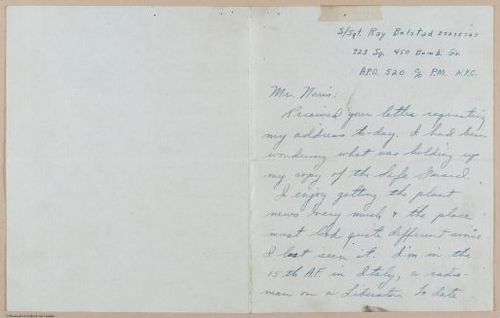 S/Sgt. Ray Bolstad
723 Sq. 450 Bomb. Gr.
A.P.O. 520 c/o P.M. N.Y.C.
Mr. Norris:
Received your letter requesting
my address to-day. I had been
wondering what was holding up
my copy of the Safe Guard.
I enjoy getting the plant
news very much & the place
must look quite different since
I last seen it. I'm in the
15th A.F. in Italy, a radio-
man on a Liberator. To date